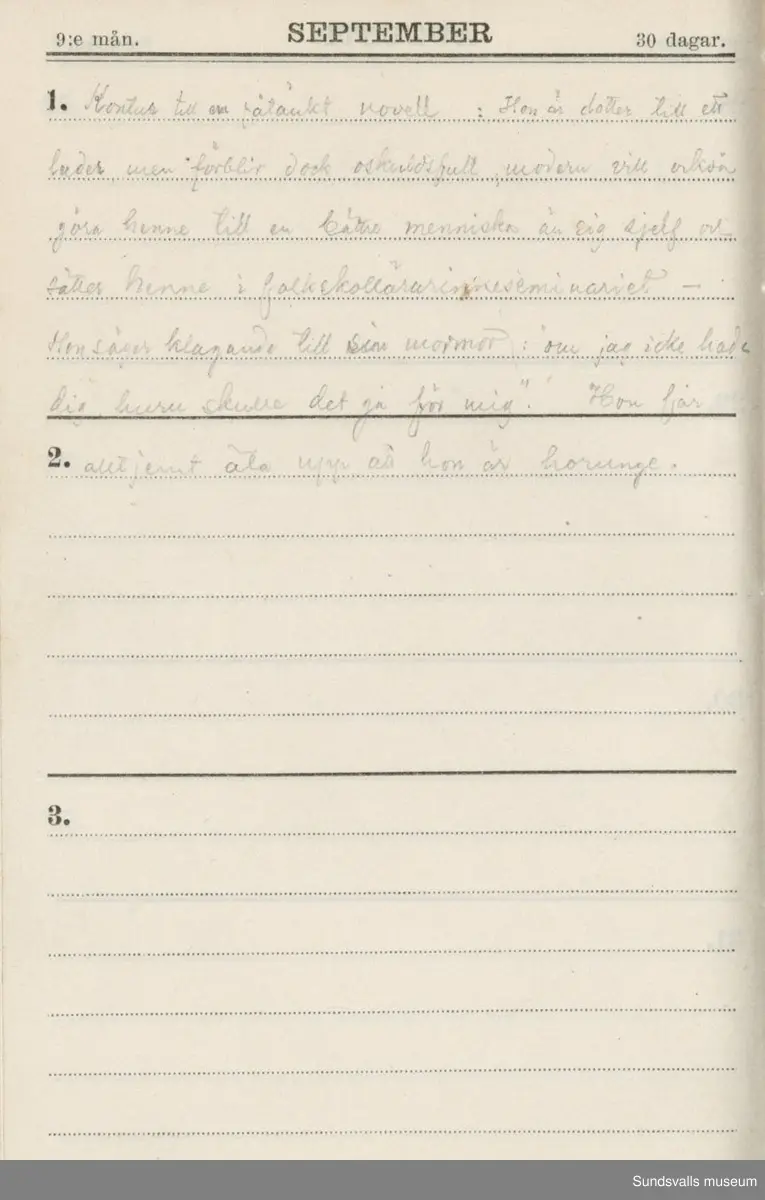 9:e mån. SEPTEMBER 30 dagar.
1. Kontur till en påtänkt novell : Hon är dotter till ett
luder, men förblir dock oskuldsfull, modern vill också
göra henne till en bättre menniska än sig sjelf och
sätter henne i folkskollärarinneseminariet –
Hon säger klagande till sin mormor : "om jag icke hade
dig, huru skulle det gå för mig". Hon får
2. alltjemt äta upp att hon är horunge.
3.
Sundsvalls museum